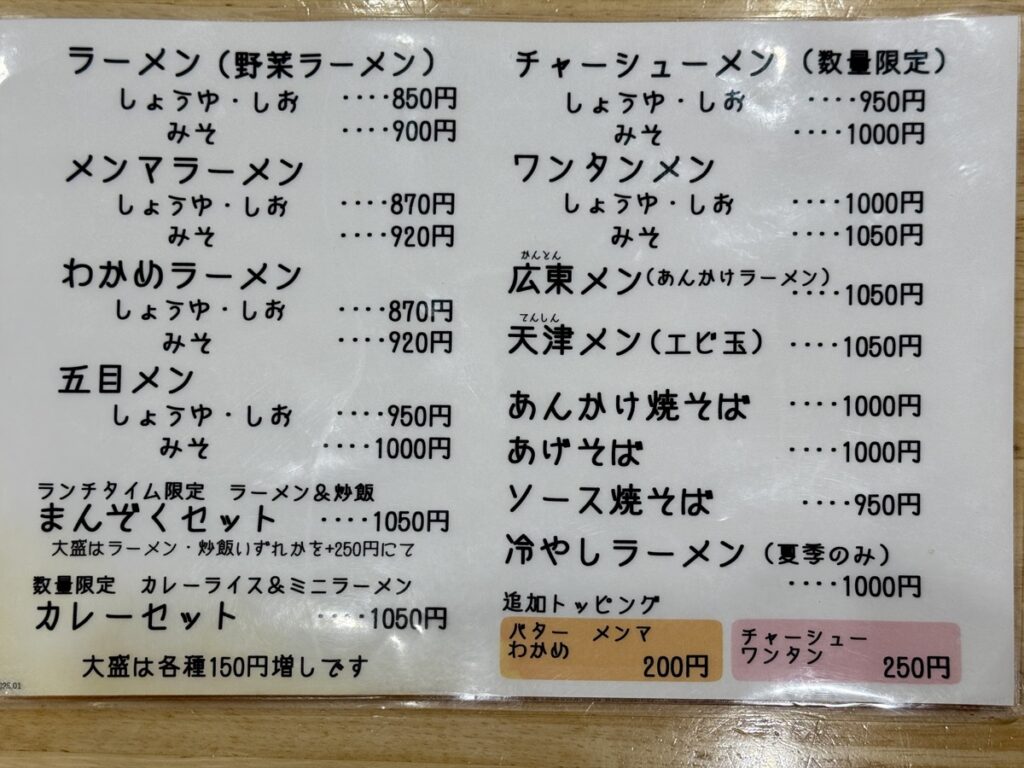 ラーメン（野菜ラーメン）
しょうゆ・しお ････850円
みそ ････900円
メンマラーメン
しょうゆ・しお ････870円
みそ ････920円
わかめラーメン
しょうゆ・しお ････870円
みそ ････920円
五目メン
しょうゆ・しお ････950円
みそ ････1000円
ランチタイム限定 ラーメン＆炒飯
まんぞくセット ････1050円
大盛はラーメン・炒飯いずれかを+250円にて
数量限定 カレーライス＆ミニラーメン
カレーセット ････1050円
大盛は各種150円増しです
チャーシューメン（数量限定）
しょうゆ・しお ････950円
みそ ････1000円
ワンタンメン
しょうゆ・しお ････1000円
みそ ････1050円
かんとん
広東メン（あんかけラーメン）
････1050円
てんしん
天津メン（エビ玉） ････1050円
あんかけ焼そば ････1000円
あげそば ････1000円
ソース焼そば ････950円
冷やしラーメン（夏季のみ）
････1000円
追加トッピング
バター メンマ
わかめ
200円
チャーシュー
ワンタン
250円